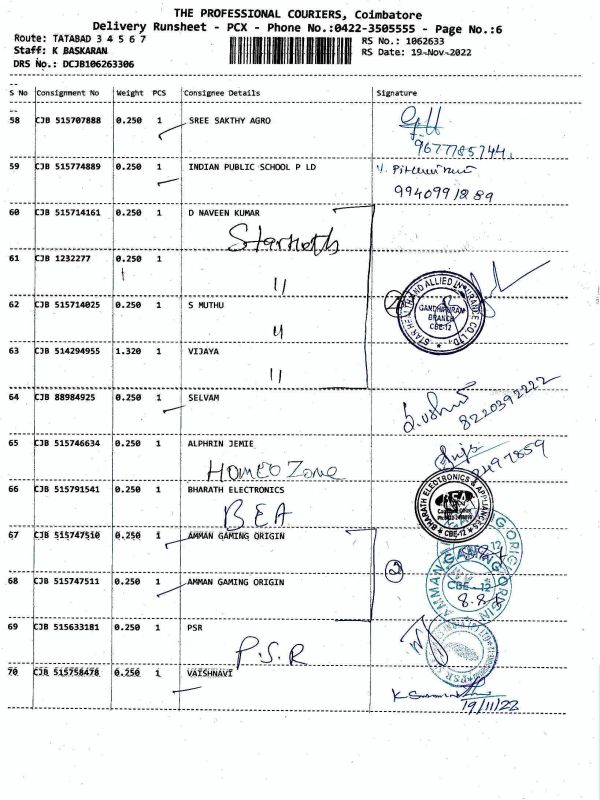 THE PROFESSIONAL COURIERS, Coimbatore
Delivery Runsheet - PCX - Phone No.:0422-3505555 - Page No.:6
Route: TATABAD 3 4 5 6 7
RS No.: 1062633
Staff: K BASKARAN
RS Date: 19-Nov-2022
DRS No.: DCJB106263306
S No Consignment No Weight PCS Consignee Details Signature
58 CJB 515707888 0.250 1 SREE SAKTHY AGRO
9677785744.
59 CJB 515774889 0.250 1 INDIAN PUBLIC SCHOOL P LD
9940991889
60 CJB 515714161 0.250 1 D NAVEEN KUMAR
Starhealth
61 CJB 1232277 0.250 1
11
STAR HEALTH AND ALLIED INSURANCE CO. LTD.,
GANDHIPURAM
BRANCH
CBE-12
62 CJB 515714025 0.250 1 S MUTHU
11
63 CJB 514294955 1.320 1 VIJAYA
11
64 CJB 88984925 0.250 1 SELVAM
8220392222
65 CJB 515746634 0.250 1 ALPHRIN JEMIE
Homeo Zone
2497859
66 CJB 515791541 0.250 1 BHARATH ELECTRONICS
BEA
BHARATH ELECTRONICS & APPLIANCES
BEA
CBE-12
67 CJB 515747510 0.250 1 AMMAN GAMING ORIGIN
2
68 CJB 515747511 0.250 1 AMMAN GAMING ORIGIN
AMMAN GAMING ORIGIN
CBE - 12
69 CJB 515633181 0.250 1 PSR
P.S.R
70 CJB 515758478 0.250 1 VAISHNAVI
19/11/22